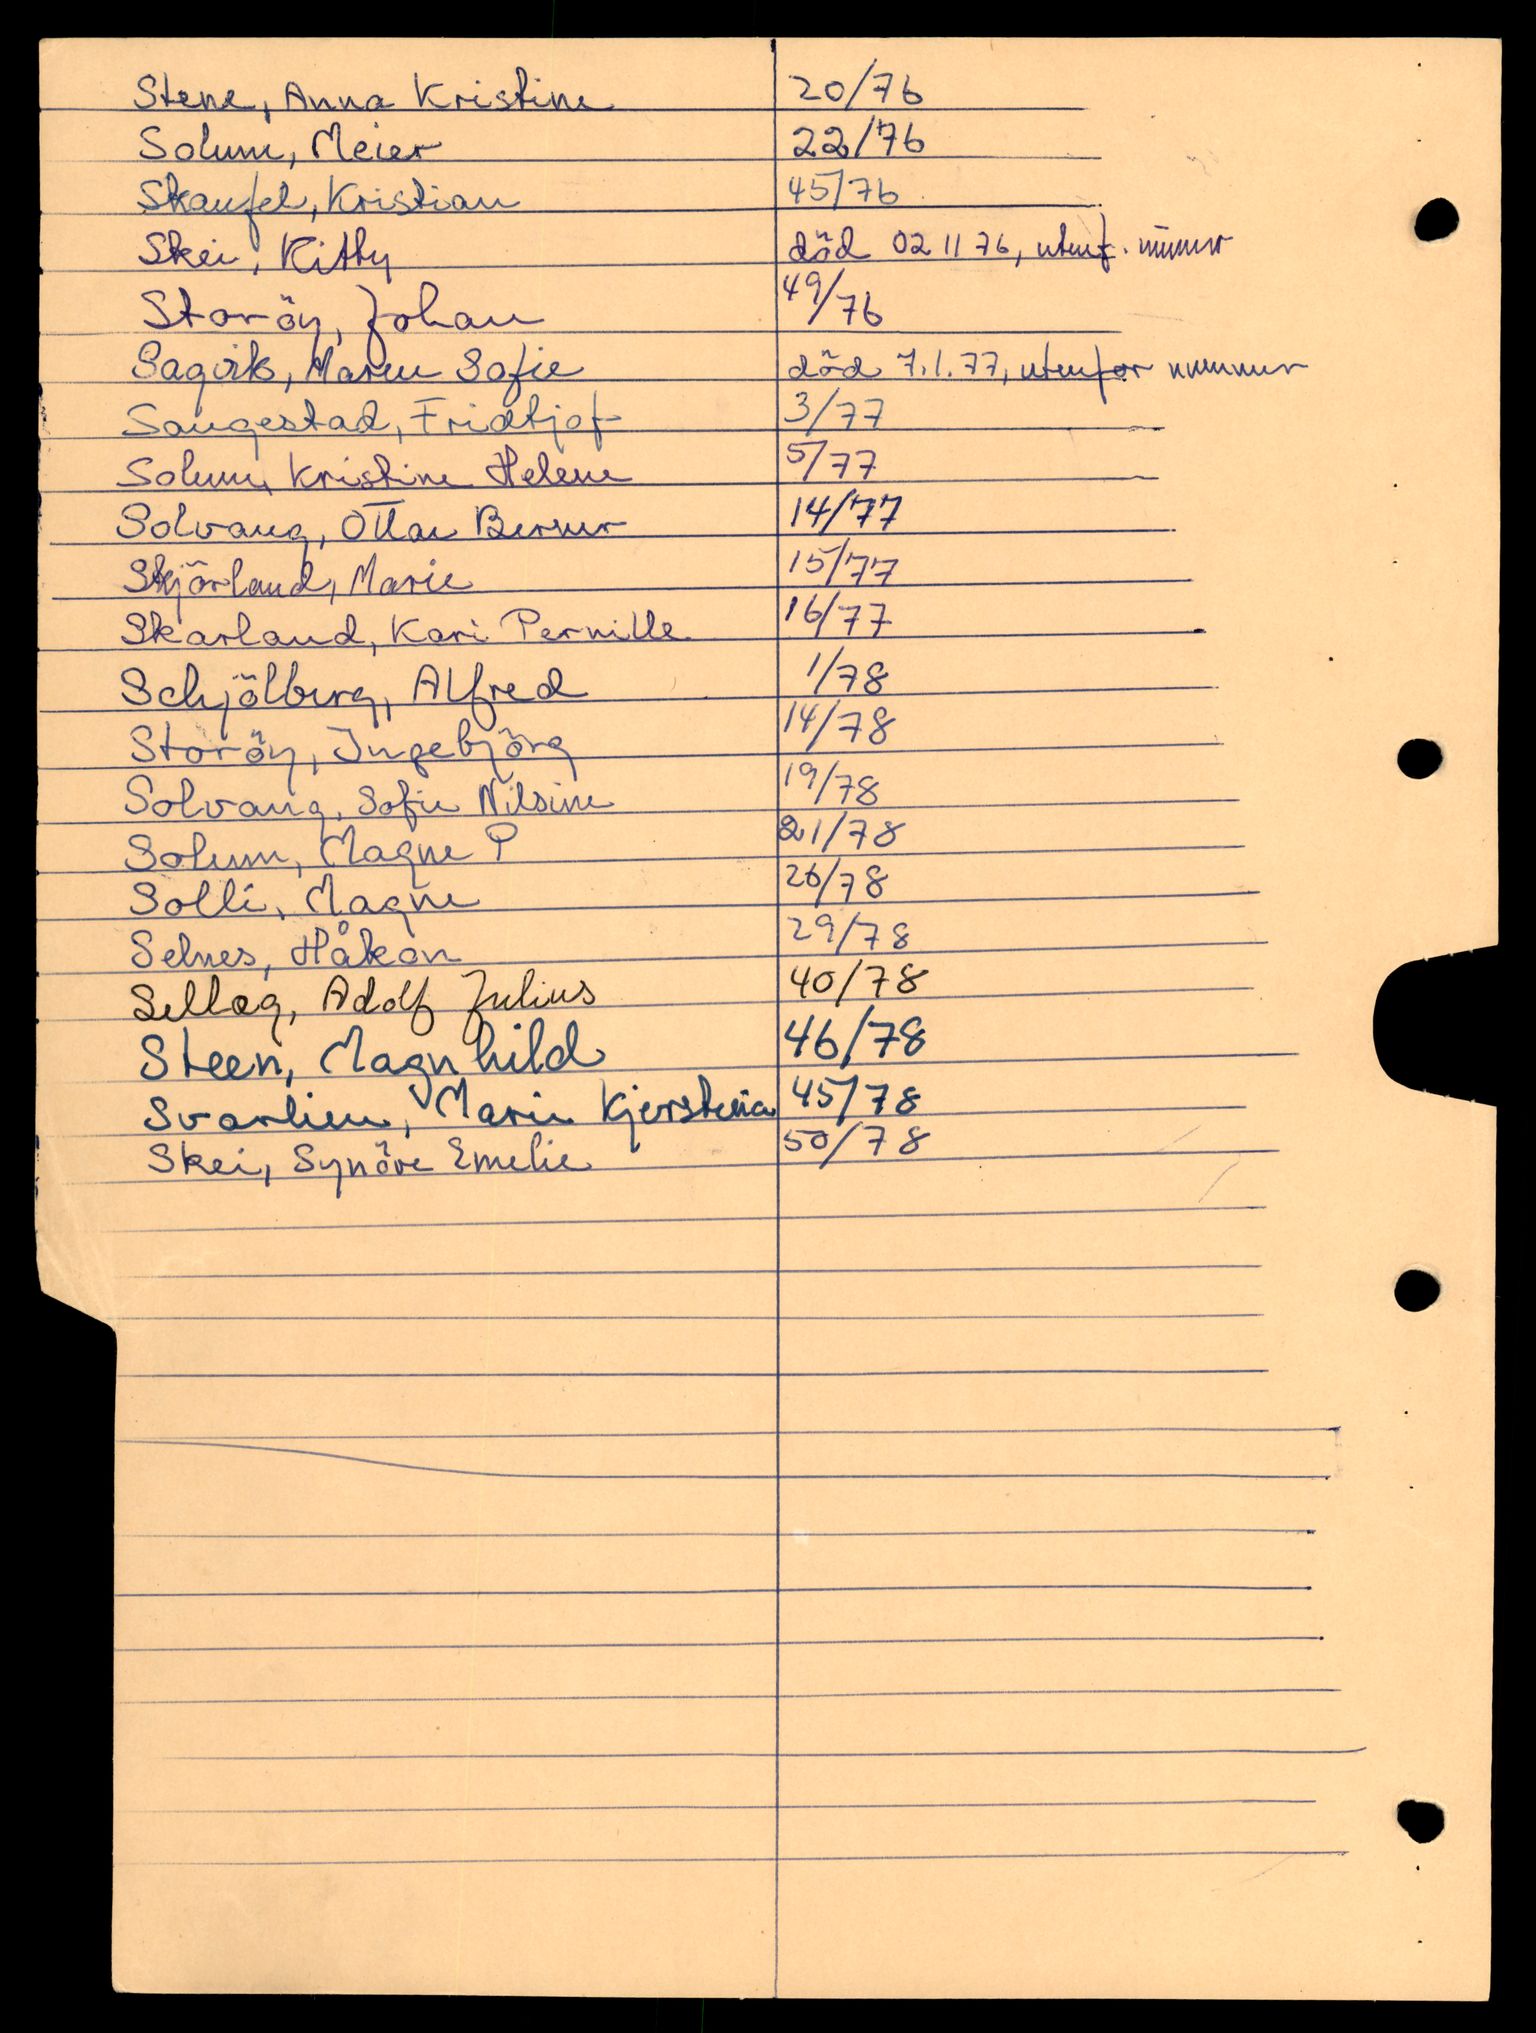 Stene, Anna Kristine 20/76
Solum, Meier 22/76
Skaufel, Kristian 45/76
Skei, Kitty död 02 11 76, utenf. nummer
Storöy, Johan 49/76
Sagvik, Maren Sofie död 7.1.77, utenfor nummer
Saugestad, Fridtjof 3/77
Solum, Kristine Helene 5/77
Solvang, Ottar Berner 14/77
Skjörland, Marie 15/77
Skarland, Kari Pernille 16/77
Schjölberg, Alfred 1/78
Storöy, Ingebjörg 14/78
Solvang, Sofie Nilsine 19/78
Solum, Magne P 21/78
Solli, Magne 26/78
Selnes, Håkon 29/78
Sellæg, Adolf Julius 40/78
Steen, Magnhild 46/78
Svarlien, Marie 45/78
Skei, Synöve Emelie 50/78